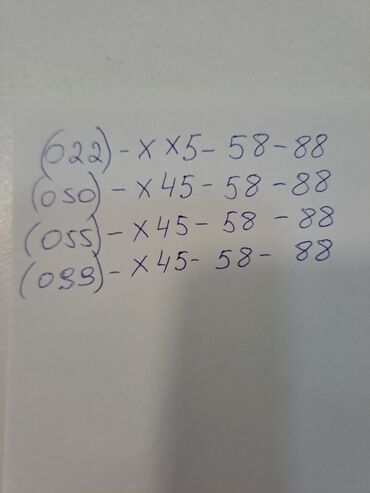 (022) - x x5 - 58 - 88
(050) - x 45 - 58 - 88
(055) - x 45 - 58 - 88
(099) - x 45 - 58 - 88